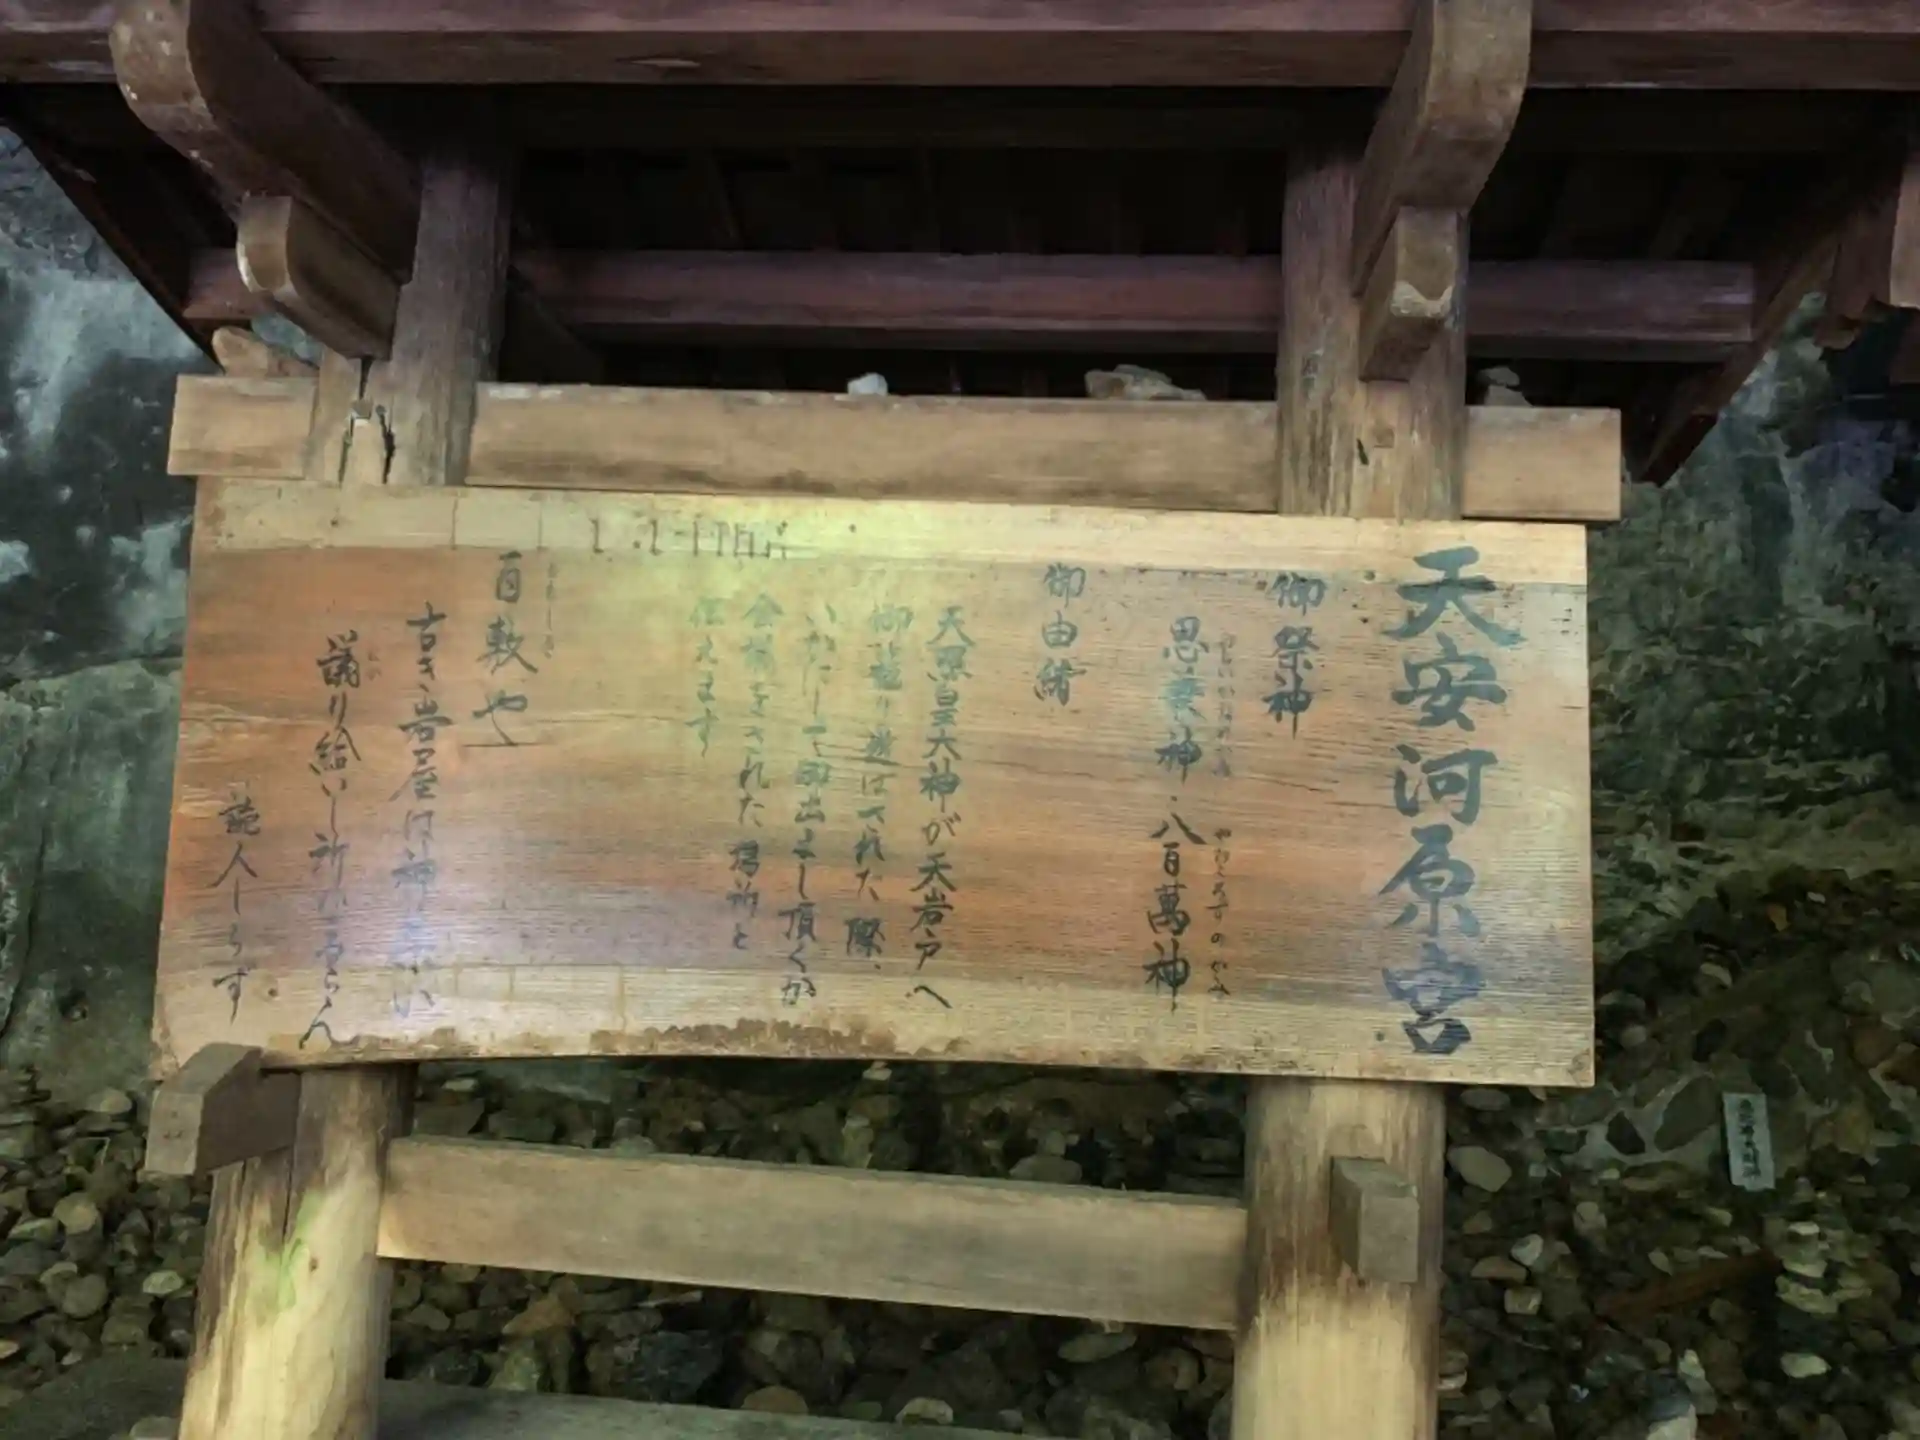 天安河原宮
御祭神
思兼神・八百萬神
御由緒
天照皇大神が天岩戸へ
御籠り遊ばされた際、
いかにして御出まし頂くか
会議をされた場所と
伝えます
百敷や
古き岩屋は神
議り給いし祈
読人しらず